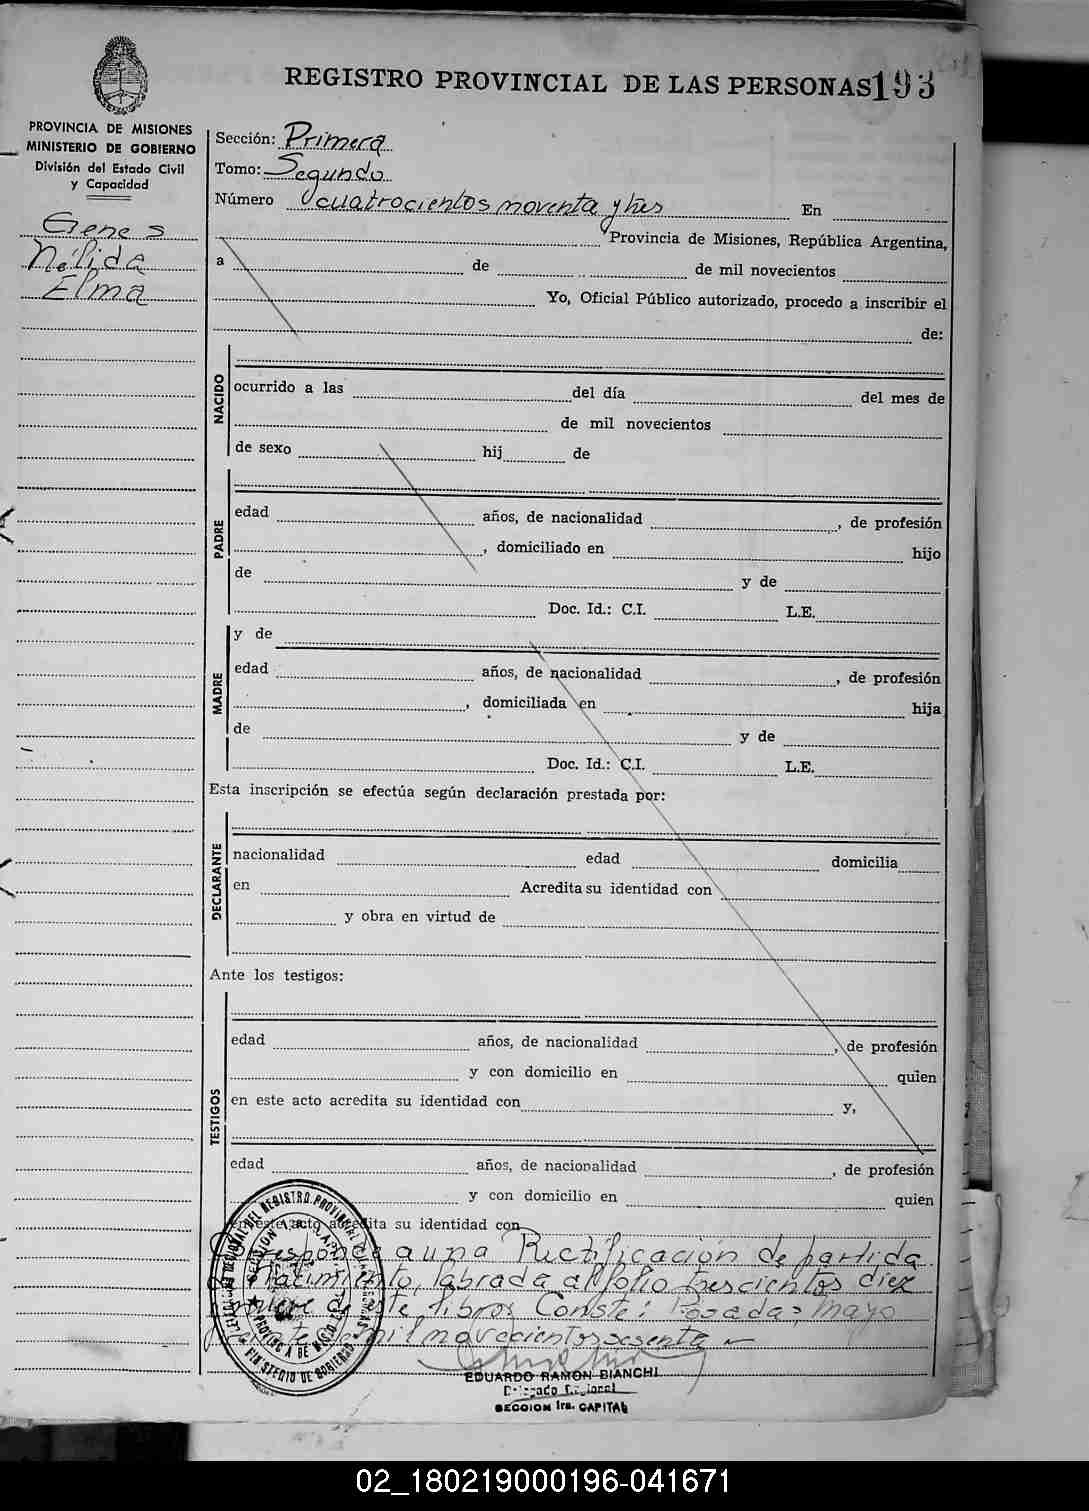 REGISTRO PROVINCIAL DE LAS PERSONAS 193
PROVINCIA DE MISIONES
MINISTERIO DE GOBIERNO
División del Estado Civil
y Capacidad
Nélida
Elma
Sección: Primera
Tomo: Segundo
Número cuatrocientos noventa y tres En
Provincia de Misiones, República Argentina,
a de de mil novecientos
Yo, Oficial Público autorizado, procedo a inscribir el
de:
NACIDO
ocurrido a las del día del mes de
de mil novecientos
de sexo hij de
PADRE
edad años, de nacionalidad , de profesión
, domiciliado en hijo
de y de
Doc. Id.: C.I. L.E.
MADRE
y de
edad años, de nacionalidad , de profesión
, domiciliada en hija
de y de
Doc. Id.: C.I. L.E.
Esta inscripción se efectúa según declaración prestada por:
DECLARANTE
nacionalidad edad domicilia
en Acredita su identidad con
y obra en virtud de
Ante los testigos:
TESTIGOS
edad años, de nacionalidad , de profesión
y con domicilio en quien
en este acto acredita su identidad con y,
edad años, de nacionalidad , de profesión
y con domicilio en quien
en este acto acredita su identidad con
Corresponde a una Rectificación de partida
Nacimiento, labrada al folio trescientos diez
de este libro. Conste: Posadas, mayo
de mil novecientos sesenta
EDUARDO RAMON BIANCHI
Delegado Regional
SECCION 1ra. CAPITAL
02_180219000196-041671